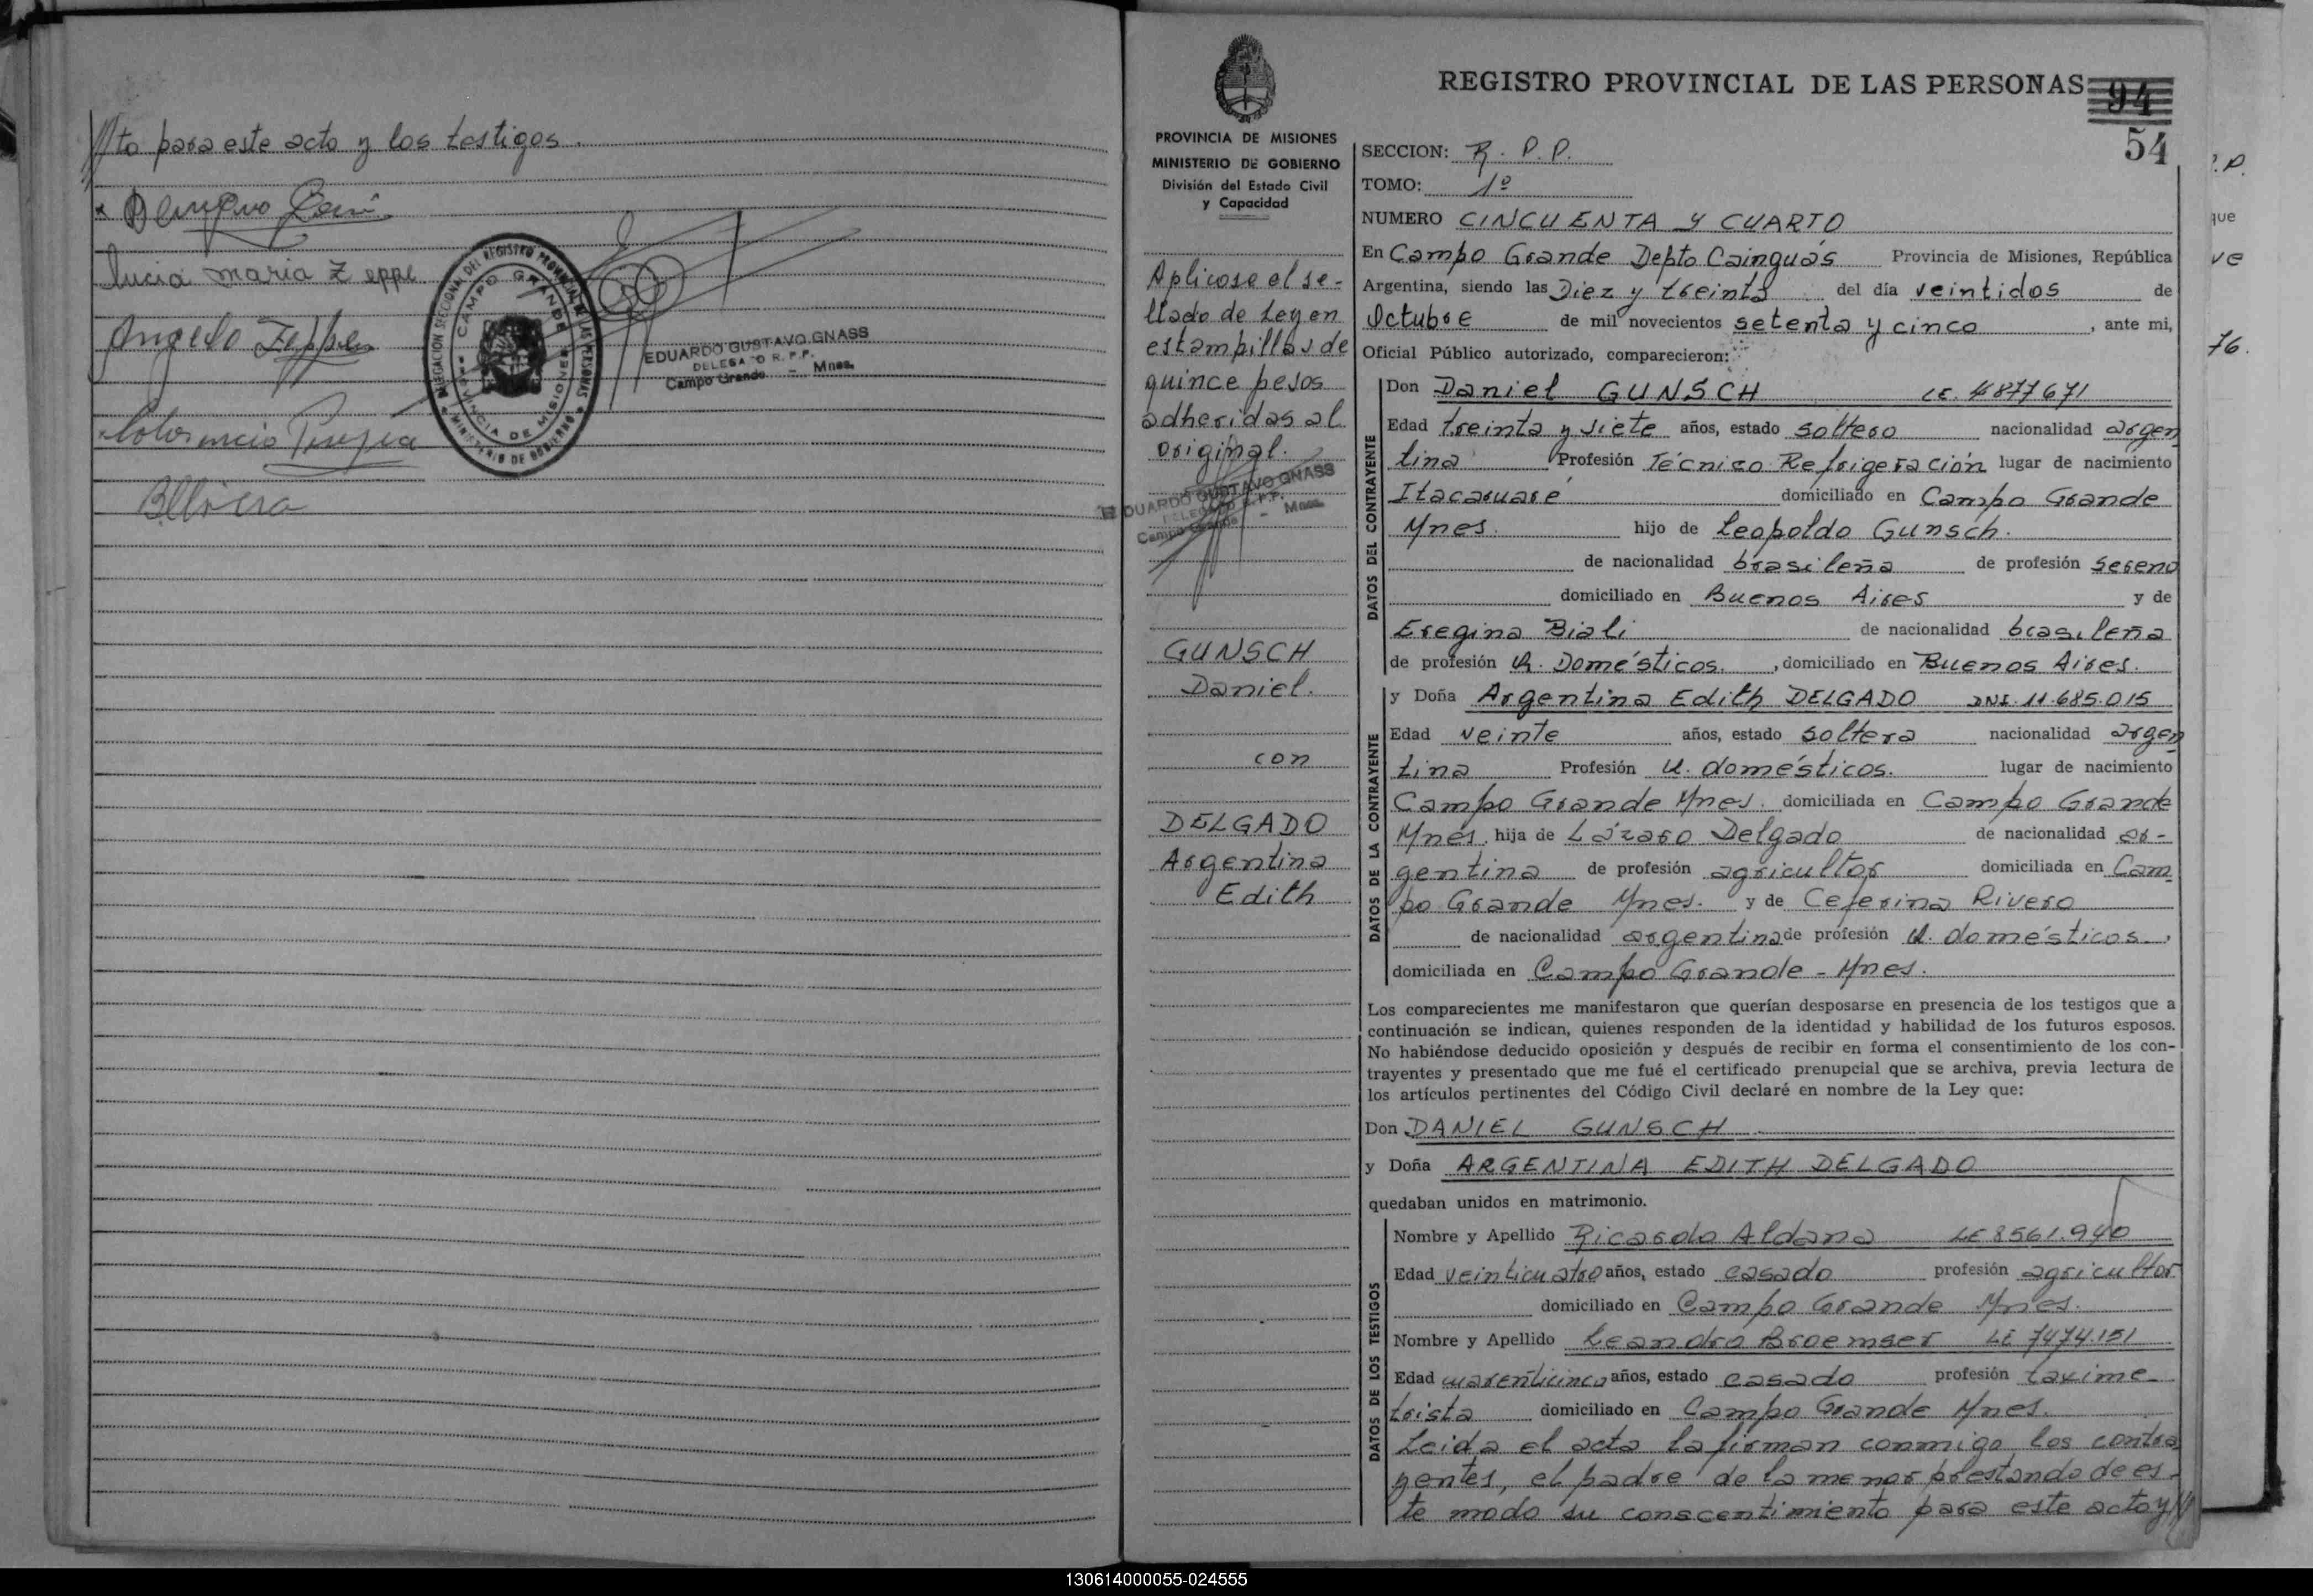 //to para este acto y los testigos.
lucia maria Zeppe
Angelo Zeppe
DELEGACION SECCIONAL DEL REGISTRO PROVINCIAL DE LAS PERSONAS
CAMPO GRANDE
PROVINCIA DE MISIONES
MINISTERIO DE GOBIERNO
EDUARDO GUSTAVO GNASS
DELEGADO R. P. P.
Campo Grande - Mnes.
REGISTRO PROVINCIAL DE LAS PERSONAS
94
54
PROVINCIA DE MISIONES
MINISTERIO DE GOBIERNO
División del Estado Civil
y Capacidad
Aplicose el se-
llado de Ley en
estampillas de
quince pesos
adheridas al
original.
EDUARDO GUSTAVO GNASS
DELEGADO R. P. P.
Campo Grande - Mnes.
GUNSCH
Daniel.
con
DELGADO
Argentina
Edith
SECCION: R. P. P.
TOMO: 1º
NUMERO CINCUENTA Y CUARTO
En Campo Grande Depto Cainguás Provincia de Misiones, República
Argentina, siendo las Diez y treinta del día veintidos de
Octubre de mil novecientos setenta y cinco, ante mi,
Oficial Público autorizado, comparecieron:
DATOS DEL CONTRAYENTE
Don Daniel GUNSCH LE. 4877671
Edad treinta y siete años, estado soltero nacionalidad argen
tina Profesión Técnico Refrigeración lugar de nacimiento
Itacaruaré domiciliado en Campo Grande
Mnes. hijo de Leopoldo Gunsch.
de nacionalidad brasileña de profesión sereno
domiciliado en Buenos Aires y de
Eregina Biali de nacionalidad brasileña
de profesión Q. Domésticos., domiciliado en Buenos Aires.
DATOS DE LA CONTRAYENTE
y Doña Argentina Edith DELGADO DNI. 11.685.015
Edad veinte años, estado soltera nacionalidad argen
tina Profesión Q. domésticos. lugar de nacimiento
Campo Grande Mnes. domiciliada en Campo Grande
Mnes. hija de Lázaro Delgado de nacionalidad ar-
gentina de profesión agricultor domiciliada en Cam
po Grande Mnes. y de Ceferina Rivero
de nacionalidad argentina de profesión Q. domésticos,
domiciliada en Campo Grande - Mnes.
Los comparecientes me manifestaron que querían desposarse en presencia de los testigos que a
continuación se indican, quienes responden de la identidad y habilidad de los futuros esposos.
No habiéndose deducido oposición y después de recibir en forma el consentimiento de los con-
trayentes y presentado que me fué el certificado prenupcial que se archiva, previa lectura de
los artículos pertinentes del Código Civil declaré en nombre de la Ley que:
Don DANIEL GUNSCH
y Doña ARGENTINA EDITH DELGADO
quedaban unidos en matrimonio.
DATOS DE LOS TESTIGOS
Nombre y Apellido Ricardo Aldana LE 8561.940
Edad veinticuatro años, estado casado profesión agricultor
domiciliado en Campo Grande Mnes.
Nombre y Apellido Leandro Broemser LE 7474.151
Edad cuarenticinco años, estado casado profesión taxime-
trista domiciliado en Campo Grande Mnes.
Leida el acta la firman conmigo los contra
yentes, el padre de la menor prestando de es-
te modo su conscentimiento para este acto y //
. P.
que
ve
76.
130614000055-024555